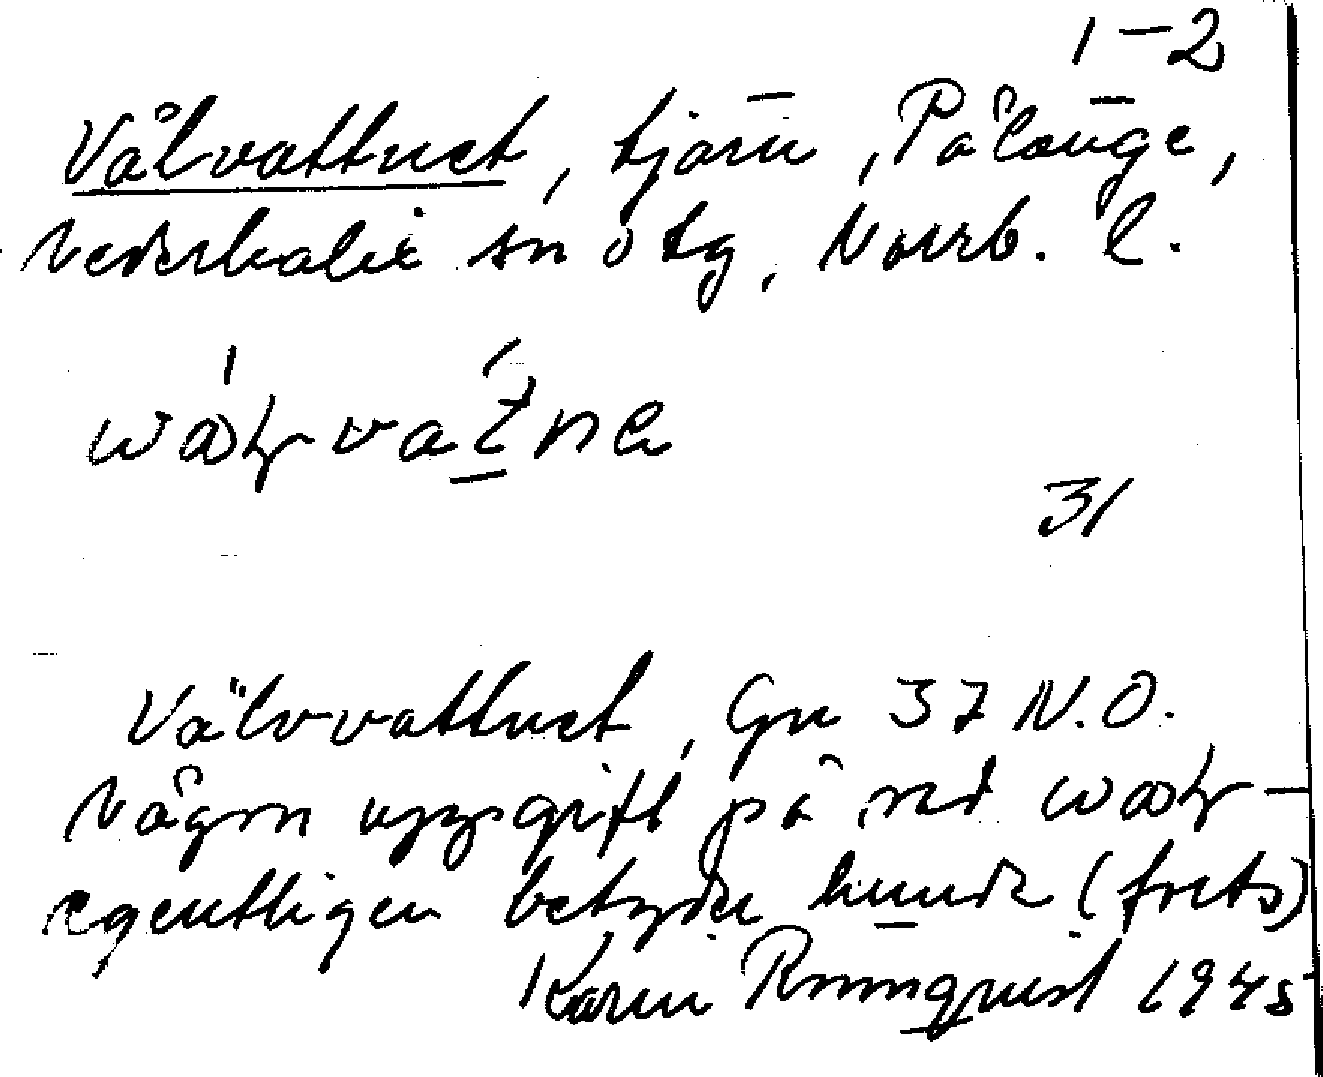 1-2
Vålvattnet, tjärn, Pålänge,
Nederkalix sn o tg, Norrb. l.
31
Välvvattnet, Gn 37 N.O.
Någon uppgift på vad
egentligen betyder kunde (forts)
Karin Rönnqvist 1945